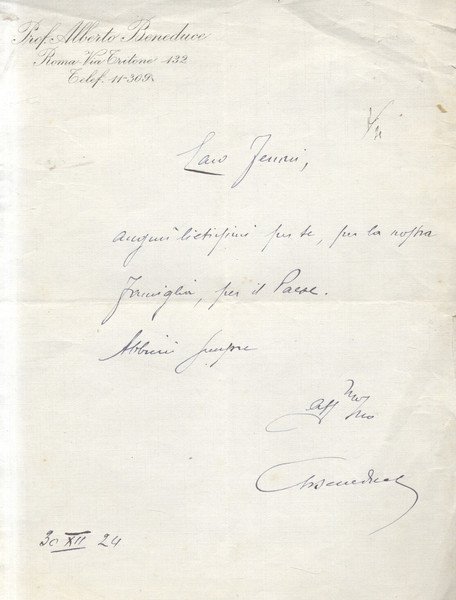 Prof. Alberto Beneduce
Roma - Via Tritone 132
Telef. 11-309
Caro
auguri lietissimi per te, per la nostra
Famiglia, per il Paese.
Abbimi sempre
aff mo
tuo
ABeneduce
30 XII 24